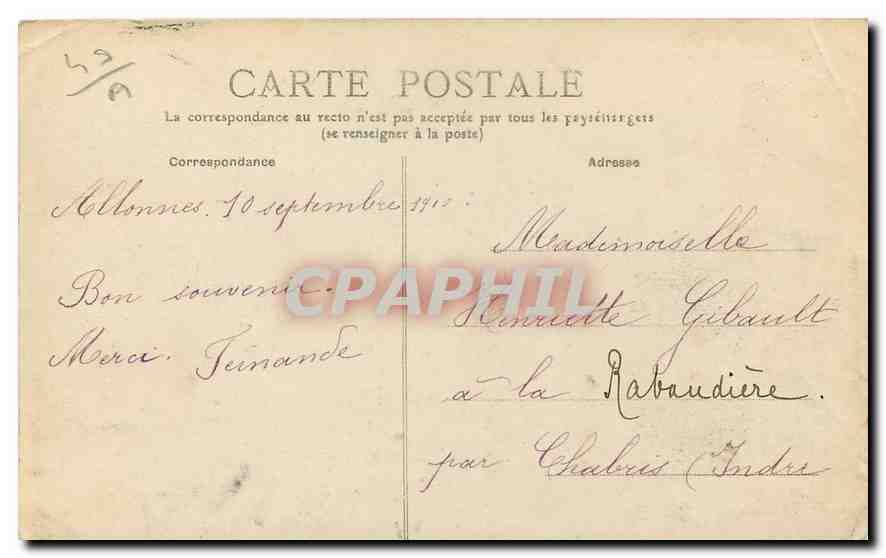 CARTE POSTALE
La correspondance au recto n'est pas acceptée par tous les pays étrangers
(se renseigner à la poste)
Correspondance
Adresse
Allonnes. 10 septembre 1910:
Bon souvenir.
Merci. Fernande
Mademoiselle
Henriette Gibault
à la Rabaudière.
par Chabris (Indre
CPAPHIL